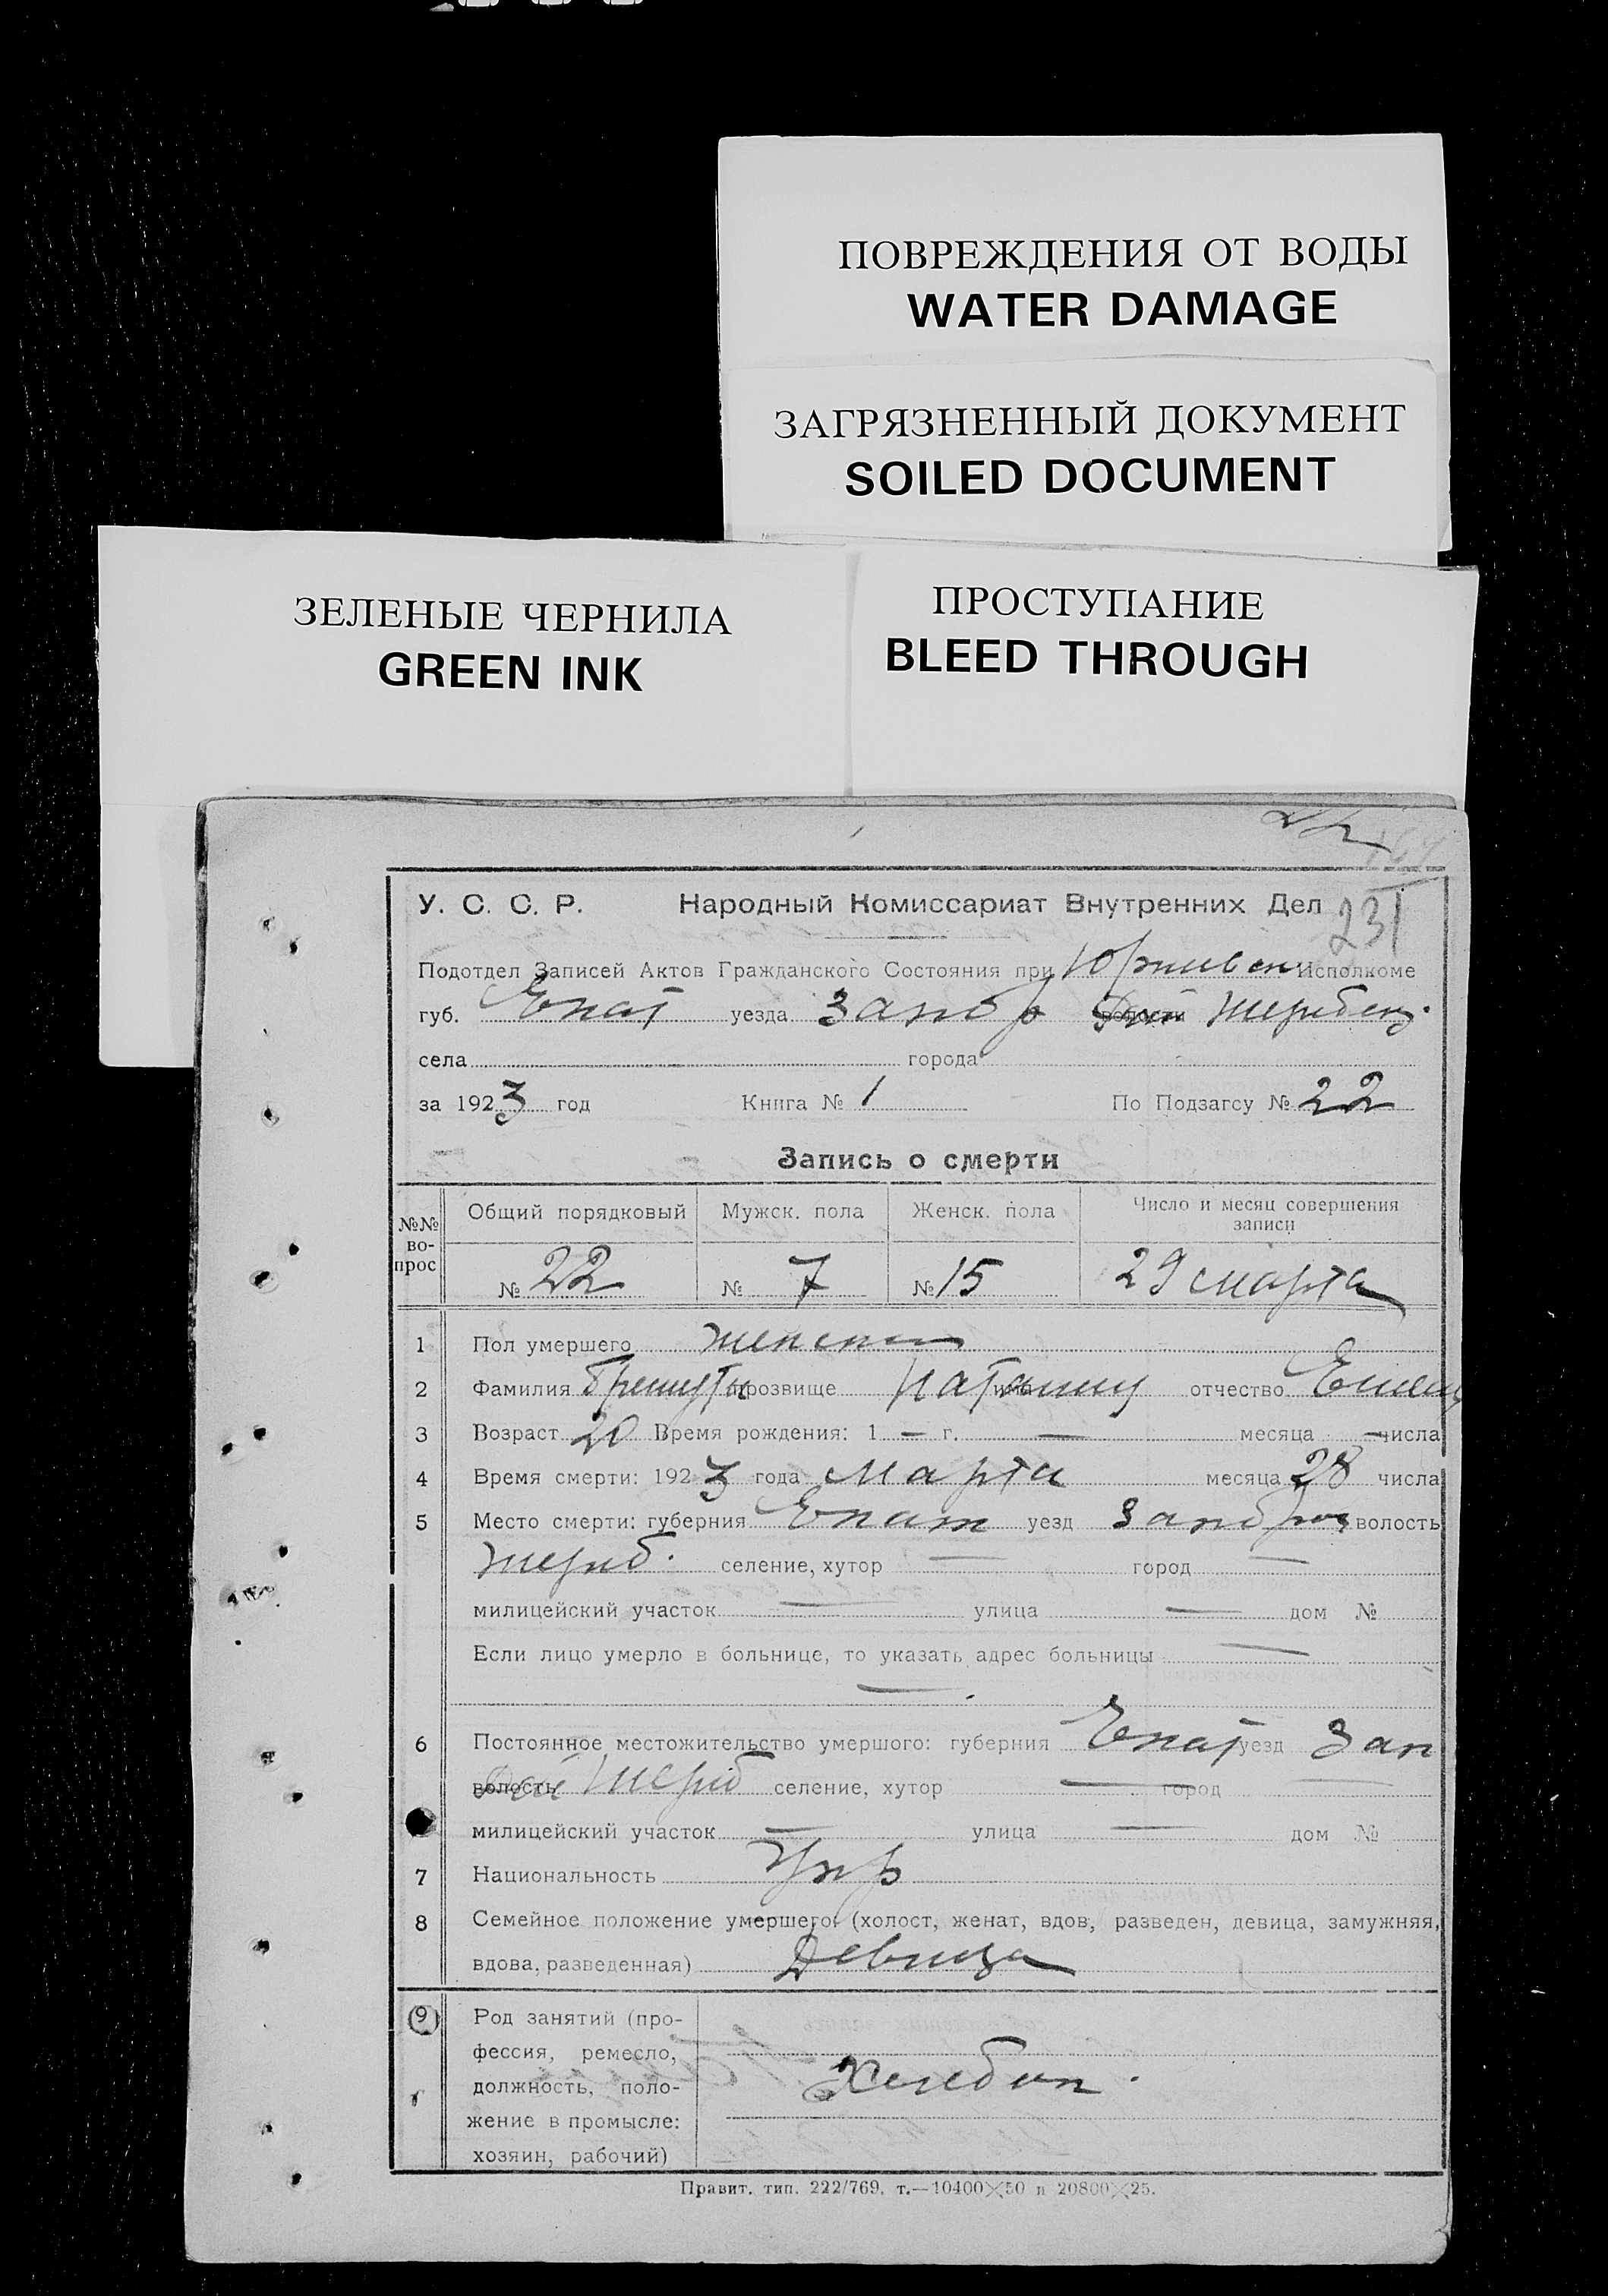 ПОВРЕЖДЕНИЯ ОТ ВОДЫ
WATER DAMAGE
ЗАГРЯЗНЕННЫЙ ДОКУМЕНТ
SOILED DOCUMENT
ЗЕЛЕНЫЕ ЧЕРНИЛА
GREEN INK
ПРОСТУПАНИЕ
BLEED THROUGH
231
У. С. С. Р. Народный Комиссариат Внутренних Дел
Подотдел Записей Актов Гражданского Состояния при Исполкоме
губ. Екат уезда Запор волости Жеребец.
села города
за 1923 год Книга № 1 По Подзагсу № 22
Запись о смерти
№№ во-прос Общий порядковый Мужск. пола Женск. пола Число и месяц совершения записи
№ 22 № 7 № 15 29 марта
1 Пол умершего женский
2 Фамилия прозвище имя отчество
3 Возраст 20 Время рождения: 1 — г. — месяца — числа
4 Время смерти: 1923 года Марта месяца 28 числа
5 Место смерти: губерния Екат уезд Запорож волость
Жереб. селение, хутор — город —
милицейский участок — улица — дом №
Если лицо умерло в больнице, то указать адрес больницы —
—
6 Постоянное местожительство умершого: губерния Екат уезд Зап
волость Жереб селение, хутор — город —
милицейский участок — улица — дом №
7 Национальность Укр
8 Семейное положение умершего: (холост, женат, вдов, разведен, девица, замужняя,
вдова, разведенная) Девица
9 Род занятий (про-
фессия, ремесло,
должность, поло-
жение в промысле:
хозяин, рабочий)
Хлебоп.
Правит. тип. 222/769, т.—10400×50 и 20800×25.